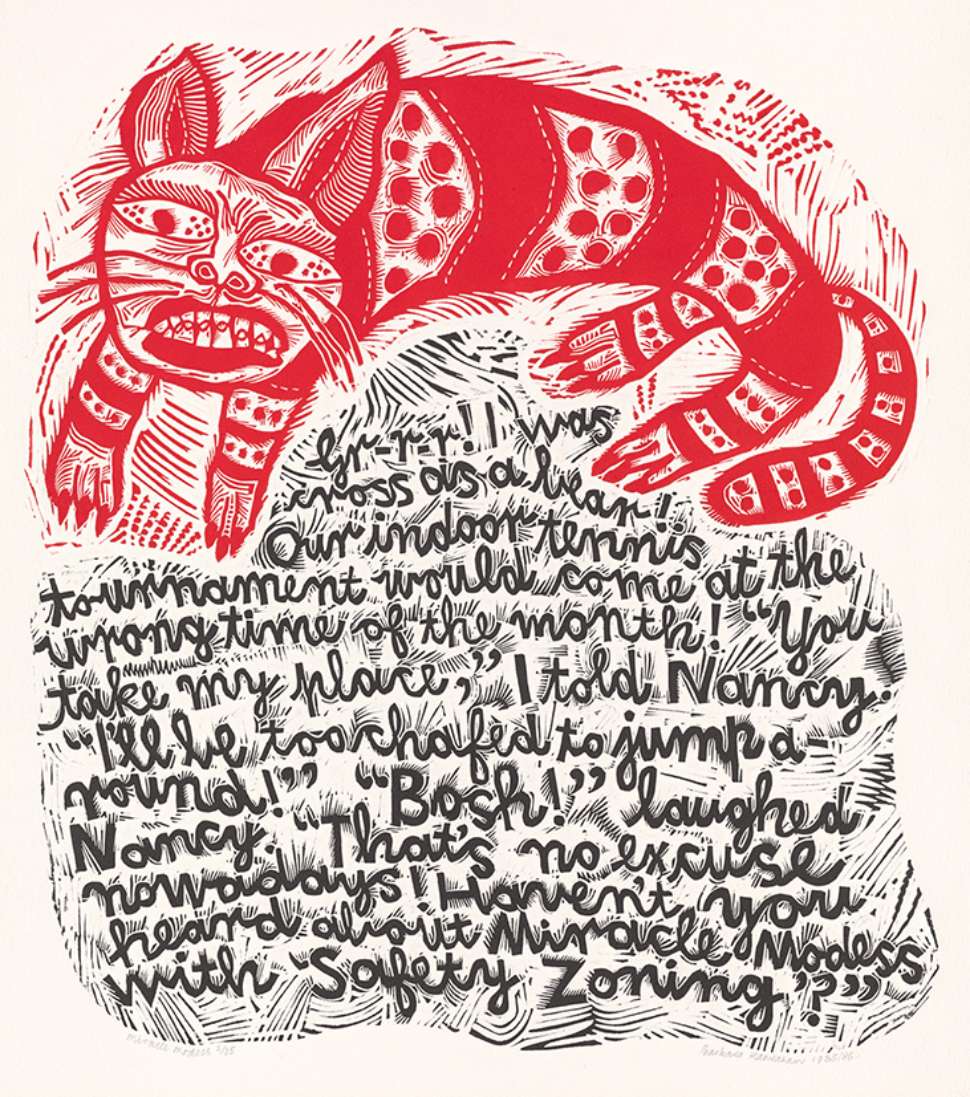 Gr-r-r! I was
cross as a bear!
Our indoor tennis
tournament would come at the
wrong time of the month! "You
take my place," I told Nancy.
"I'll be too chafed to jump a-
round!" "Bosh!" laughed
Nancy. "That's no excuse
nowadays! Haven't you
heard about Miracle Modess
with 'Safety Zoning'?"
Miracle Modess 2/25
Barbara Hanrahan